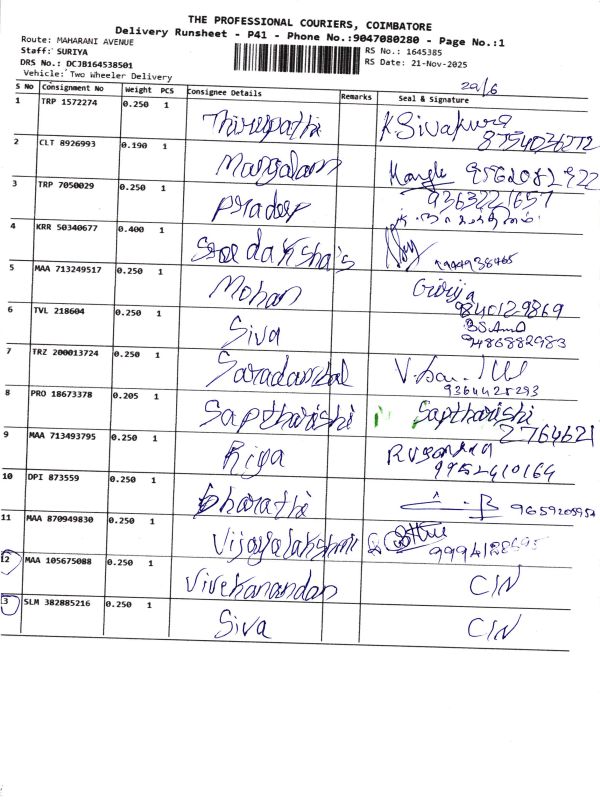 THE PROFESSIONAL COURIERS, COIMBATORE
Delivery Runsheet - P41 - Phone No.:9047080280 - Page No.:1
Route: MAHARANI AVENUE
RS No.: 1645385
Staff: SURIYA
RS Date: 21-Nov-2025
DRS No.: DCJB164538501
Vehicle: Two Wheeler Delivery
S No Consignment No Weight PCS Consignee Details Remarks Seal & Signature
1 TRP 1572274 0.250 1 Thirupathi K Sivakumar
2 CLT 8926993 0.190 1 Mangalam
3 TRP 7050029 0.250 1 Pradeep 9363221657
4 KRR 50340677 0.400 1 Sree daksha's
5 MAA 713249517 0.250 1 Mohan Girija
9840129869
6 TVL 218604 0.250 1 Siva
9486882983
7 TRZ 200013724 0.250 1 Saradambal
9364425293
8 PRO 18673378 0.205 1 Saptharishi Saptharishi
2764621
9 MAA 713493795 0.250 1 Riya
9952410164
10 DPI 873559 0.250 1 bharathi
11 MAA 870949830 0.250 1 Vijayalakshmi
12 MAA 105675088 0.250 1 Vivekanandan CIN
13 SLM 382885216 0.250 1 Siva CIN